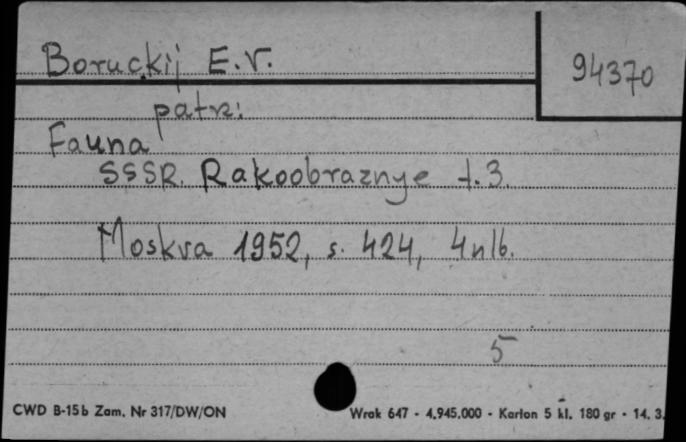 Boruckij E.V.
94370
patrz:
Fauna
SSSR. Rakoobraznye t.3.
Moskva 1952, s. 424, 4nlb.
5
CWD B-15b Zam. Nr 317/DW/ON
Wrak 647 - 4,945.000 - Karton 5 kl. 180 gr - 14. 3.